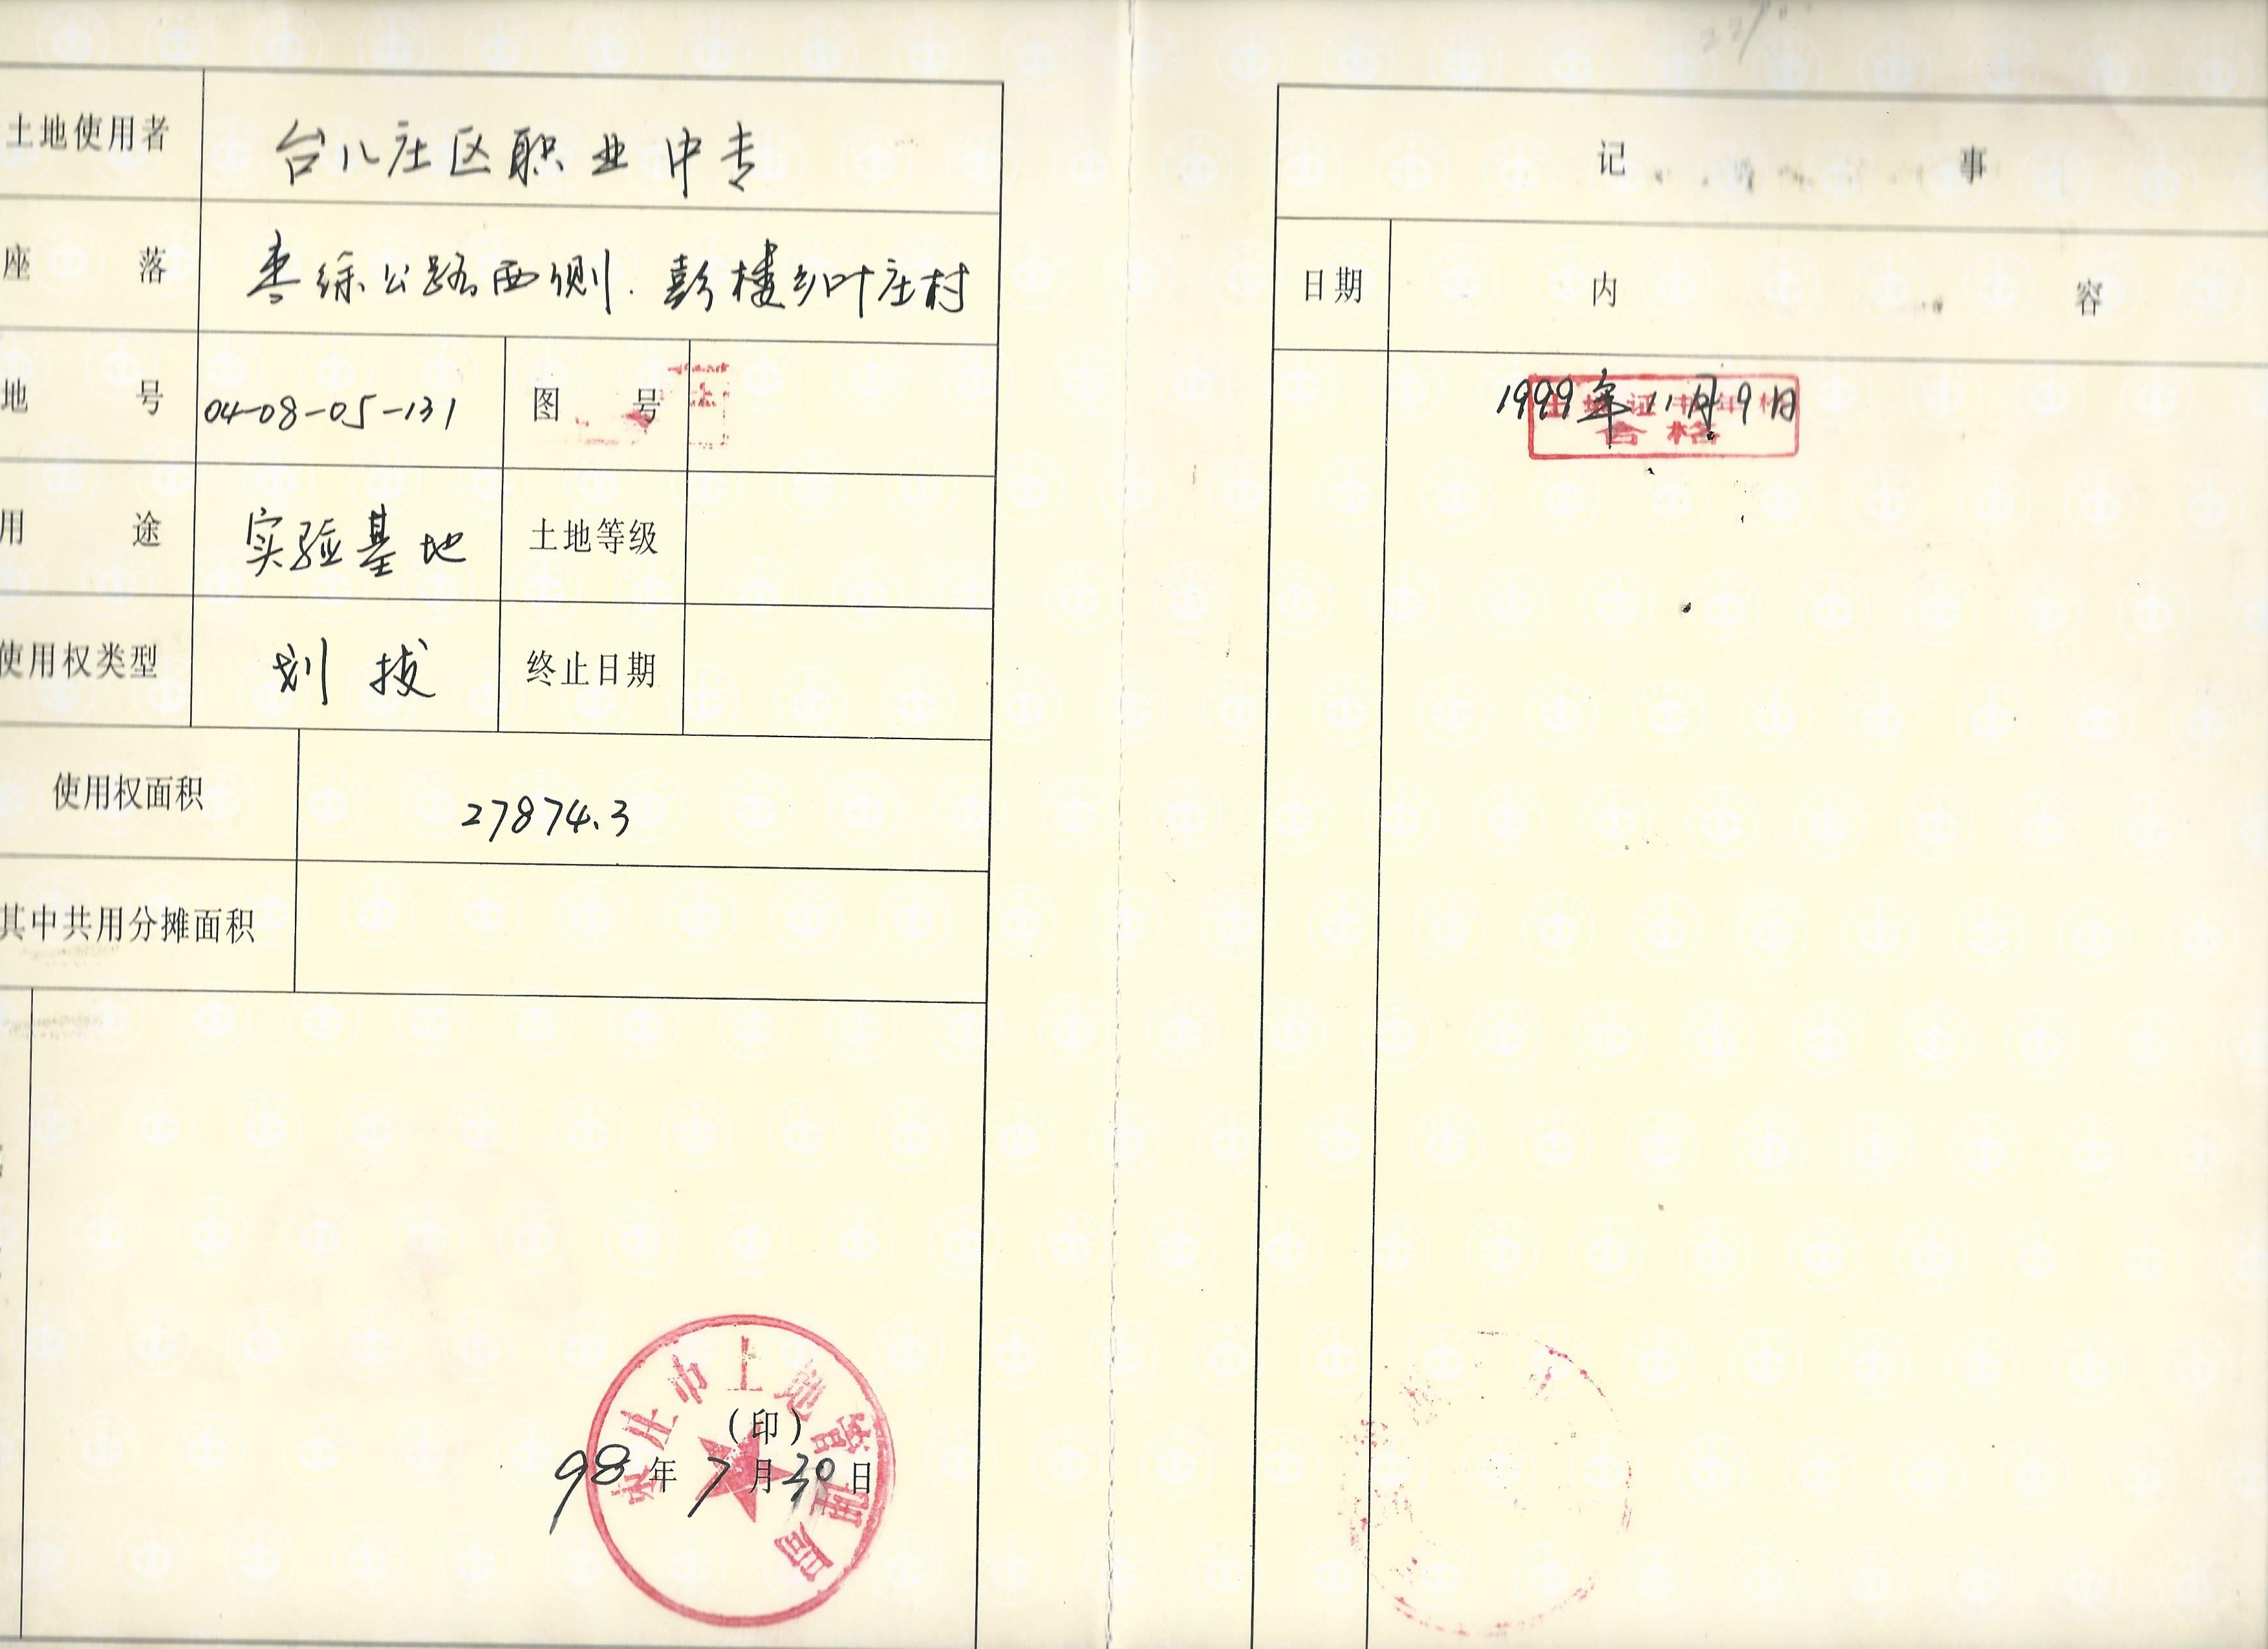 土地使用者 台儿庄区职业中专
座落 枣徐公路西侧.彭楼乡叶庄村
地号 04-08-05-131 图号
用途 实验基地 土地等级
使用权类型 划拨 终止日期
使用权面积 27874.3
其中共用分摊面积
枣庄市土地管理局
(印)
98年7月30日
记事
日期 内容
1999年11月9日
合格